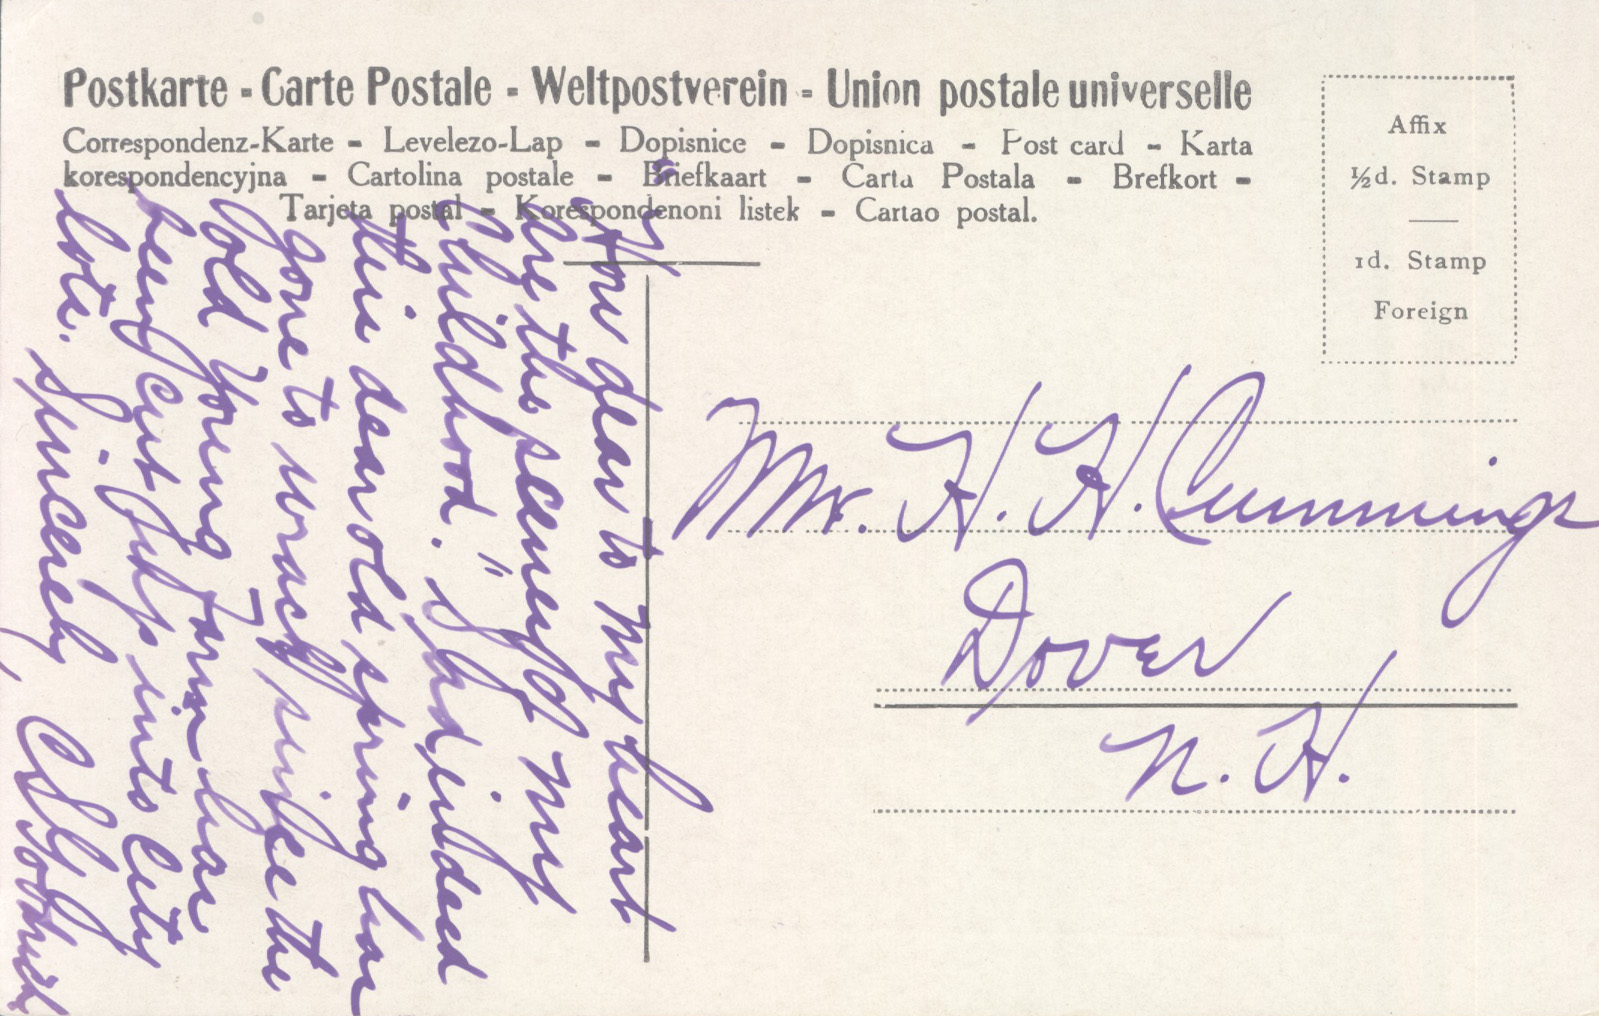 Postkarte - Carte Postale - Weltpostverein - Union postale universelle
Correspondenz-Karte - Levelezo-Lap - Dopisnice - Dopisnica - Post card - Karta
korespondencyjna - Cartolina postale - Briefkaart - Carta Postala - Brefkort -
Tarjeta postal - Korespondenoni listek - Cartao postal.
Affix
½d. Stamp
1d. Stamp
Foreign
"How dear to my heart
are the scenes of my
childhood." And indeed
this dear old spring has
gone to wrack since the
old Young Farm has
been cut up into City
lots. Sincerely,
Mr. H. H. Cummings
Dover
N. H.